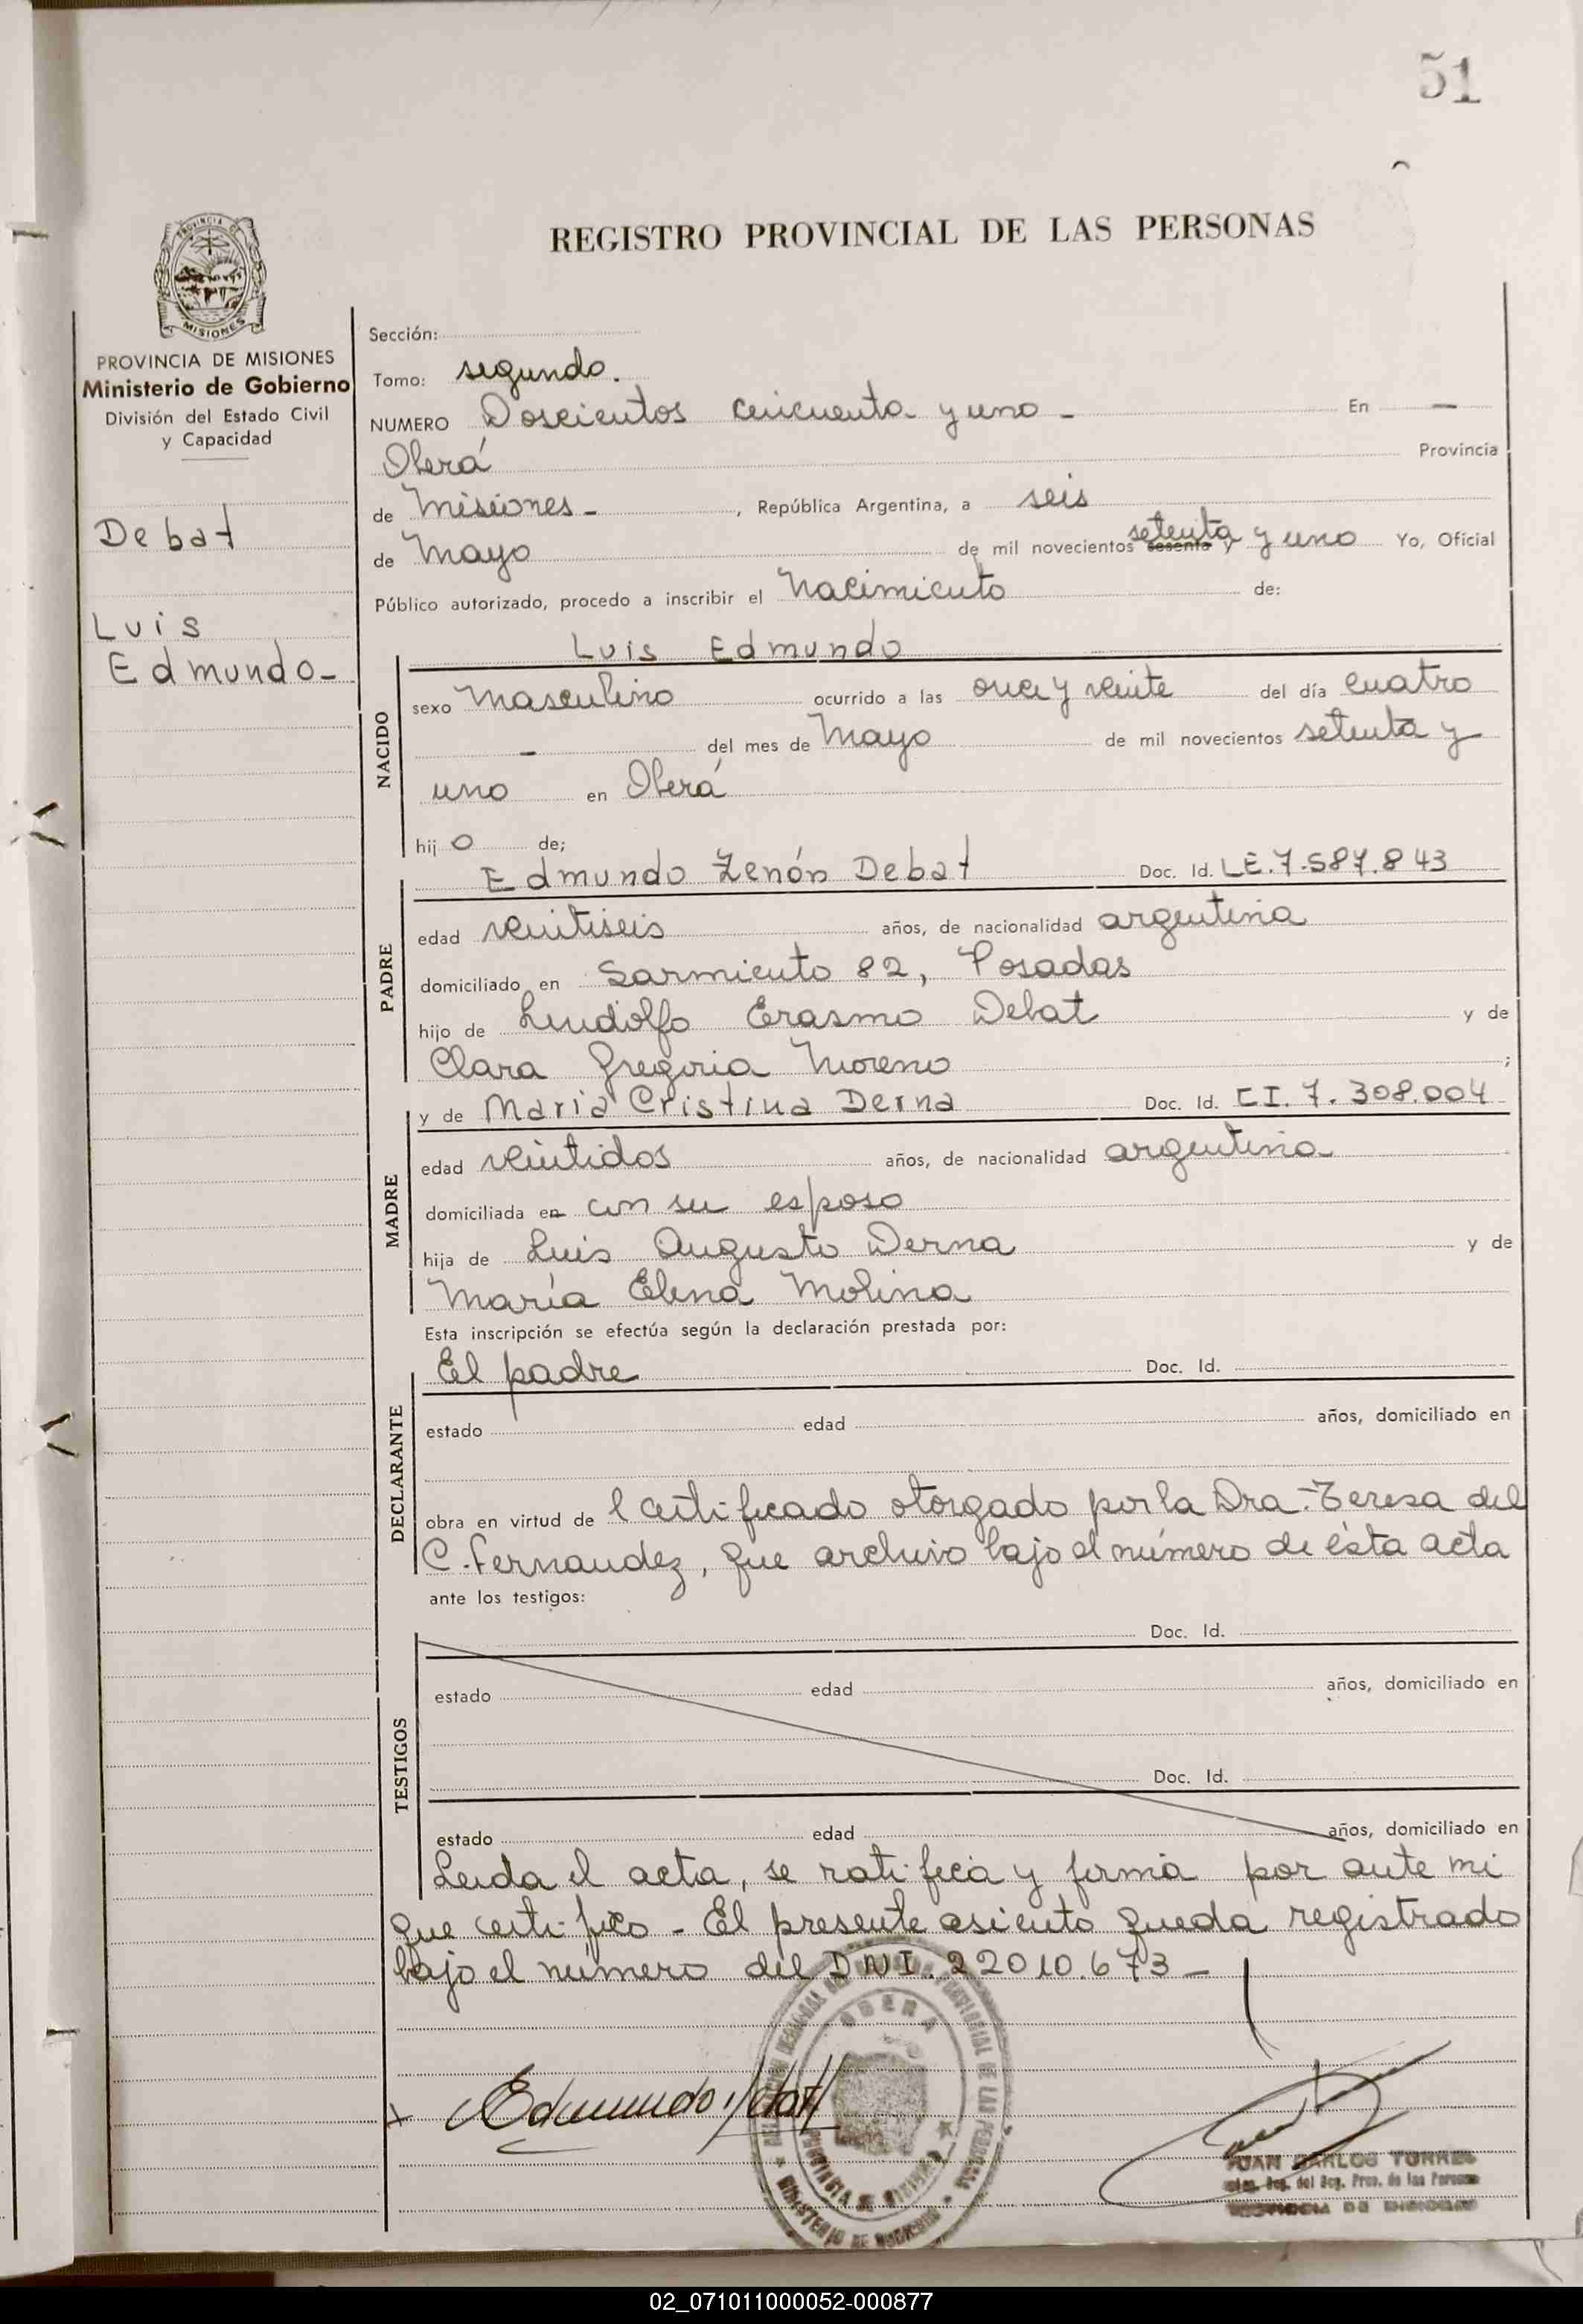 51
REGISTRO PROVINCIAL DE LAS PERSONAS
PROVINCIA
MISIONES
PROVINCIA DE MISIONES
Ministerio de Gobierno
División del Estado Civil
y Capacidad
Debat
Luis
Edmundo-
Sección:
Tomo: segundo.
NUMERO Doscientos cincuenta y uno - En -
Oberá Provincia
de Misiones - , República Argentina, a seis
de Mayo de mil novecientos sesenta y setenta y uno Yo, Oficial
Público autorizado, procedo a inscribir el Nacimiento de:
NACIDO
Luis Edmundo
sexo Masculino ocurrido a las once y veinte del día cuatro
- del mes de Mayo de mil novecientos setenta y
uno en Oberá
hijo de;
PADRE
Edmundo Zenón Debat Doc. Id. LE. 7.587.843
edad veintiseis años, de nacionalidad argentina
domiciliado en Sarmiento 82, Posadas
hijo de Lindolfo Erasmo Debat y de
Clara Gregoria Moreno ;
MADRE
y de María Cristina Derna Doc. Id. CI. 7.308.004
edad veintidos años, de nacionalidad argentina
domiciliada en con su esposo
hija de Luis Augusto Derna y de
María Elena Molina
Esta inscripción se efectúa según la declaración prestada por:
DECLARANTE
El padre Doc. Id.
estado edad años, domiciliado en
obra en virtud de l certificado otorgado por la Dra. Teresa del
C. Fernandez, que archivo bajo el número de ésta acta
ante los testigos:
TESTIGOS
Doc. Id.
estado edad años, domiciliado en
Doc. Id.
estado edad años, domiciliado en
Leida el acta, se ratifica y firma por ante mi
que certifico - El presente asiento queda registrado
bajo el número del DNI. 22010.673 -
OBERA
PROVINCIAL DE LAS PERSONAS
PROVINCIA DE MISIONES
MINISTERIO DE GOBIERNO
Edmundo Debat
JUAN CARLOS TORRES
del Reg. Prov. de las Personas
PROVINCIA DE MISIONES
02_071011000052-000877